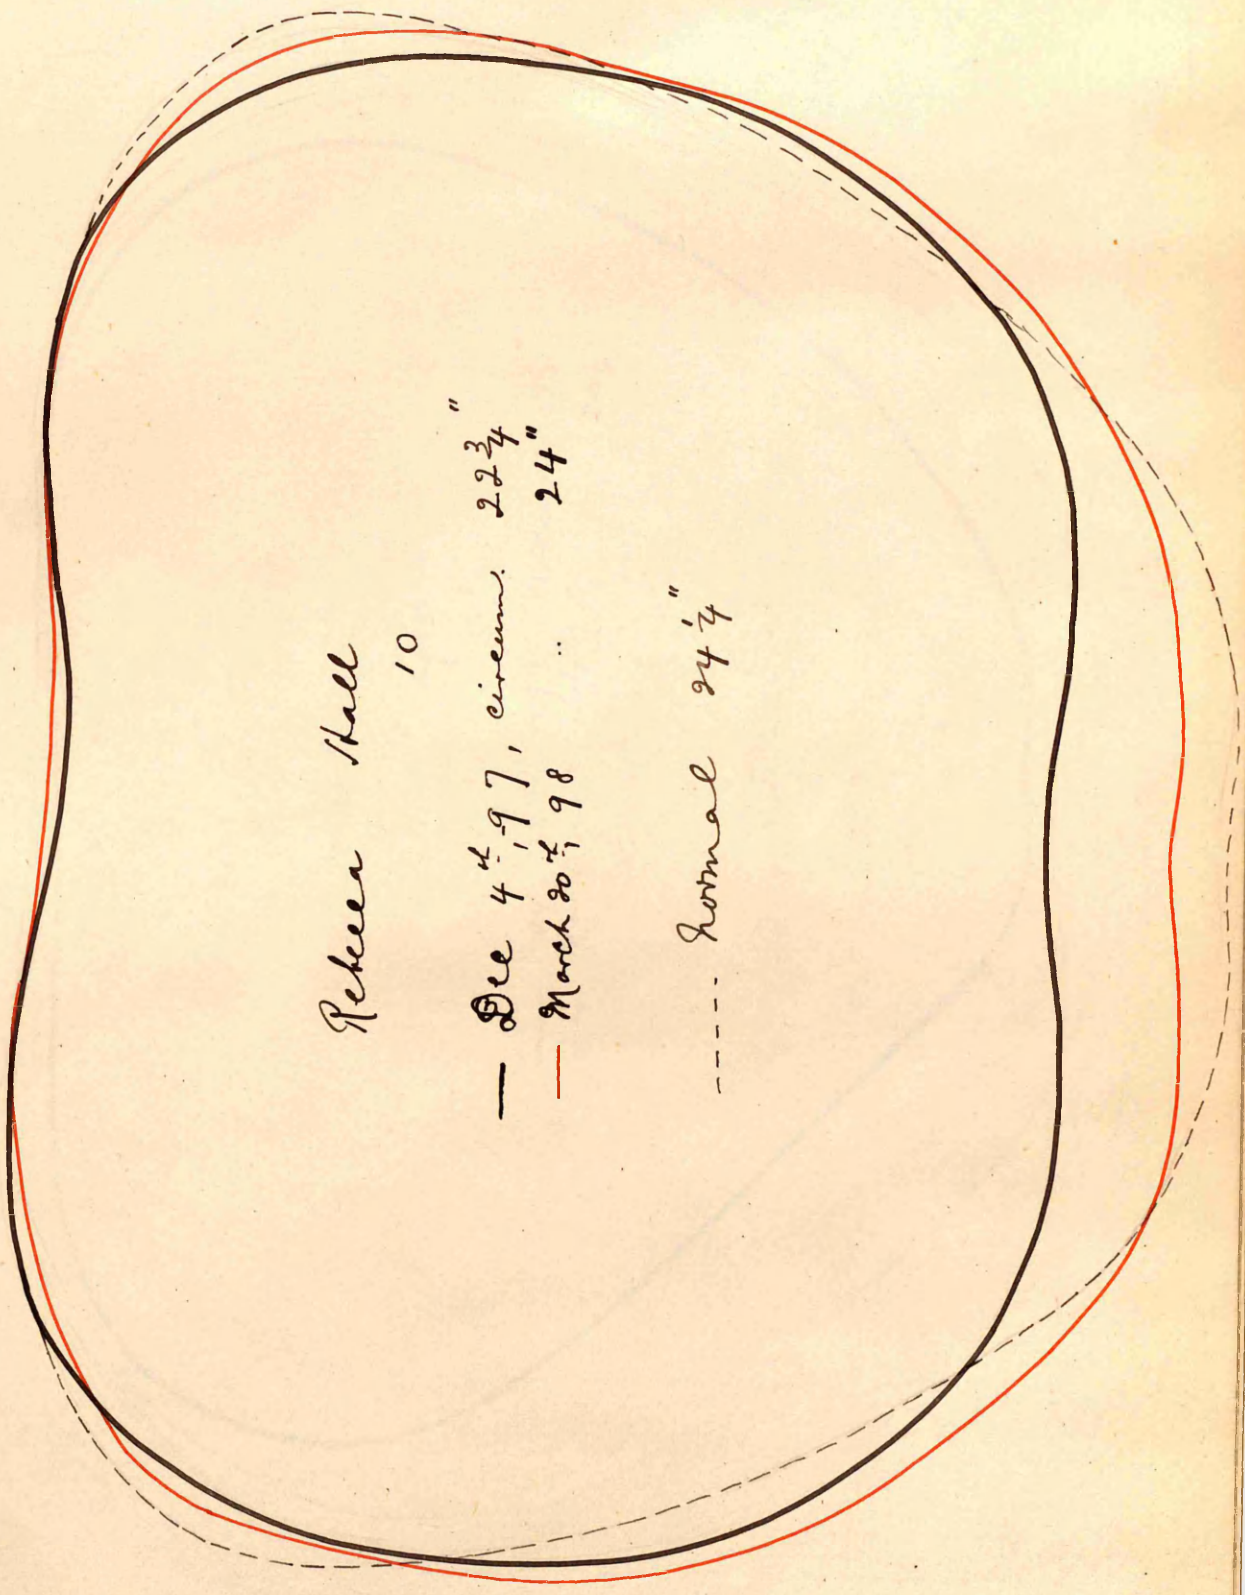 Rebecca Hall
10
— Dec 4th, 97, circum. 22 3/4"
— March 20th, 98 .. 24"
---- Normal 24 1/4"